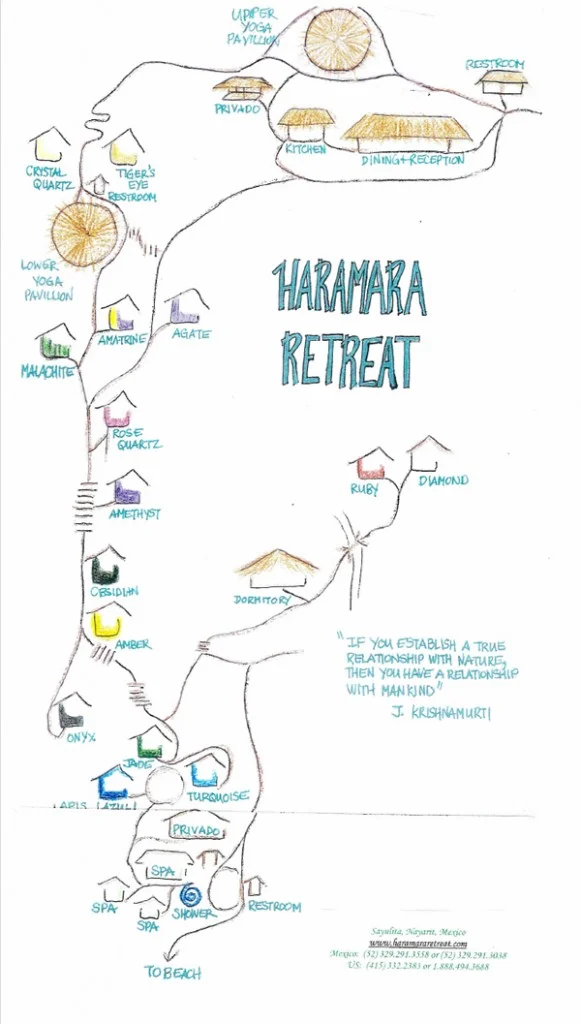 UPPER
YOGA
PAVILLION
RESTROOM
PRIVADO
KITCHEN
DINING+RECEPTION
CRYSTAL
QUARTZ
TIGER'S
EYE
RESTROOM
LOWER
YOGA
PAVILLION
HARAMARA
RETREAT
AMATRINE
AGATE
MALACHITE
ROSE
QUARTZ
RUBY
DIAMOND
AMETHYST
OBSIDIAN
DORMITORY
AMBER
"IF YOU ESTABLISH A TRUE
RELATIONSHIP WITH NATURE,
THEN YOU HAVE A RELATIONSHIP
WITH MANKIND"
J. KRISHNAMURTI
ONYX
JADE
TURQUOISE
LAPIS LAZULI
PRIVADO
SPA
SPA
SPA
SHOWER
RESTROOM
TO BEACH
Sayulita, Nayarit, Mexico
www.haramararetreat.com
Mexico: (52) 329.291.3558 or (52) 329.291.3038
US: (415) 332.2383 or 1.888.494.3688